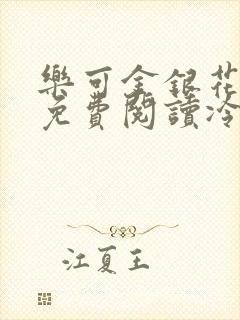 樂可金銀花
免費閱讀冷
江夏王